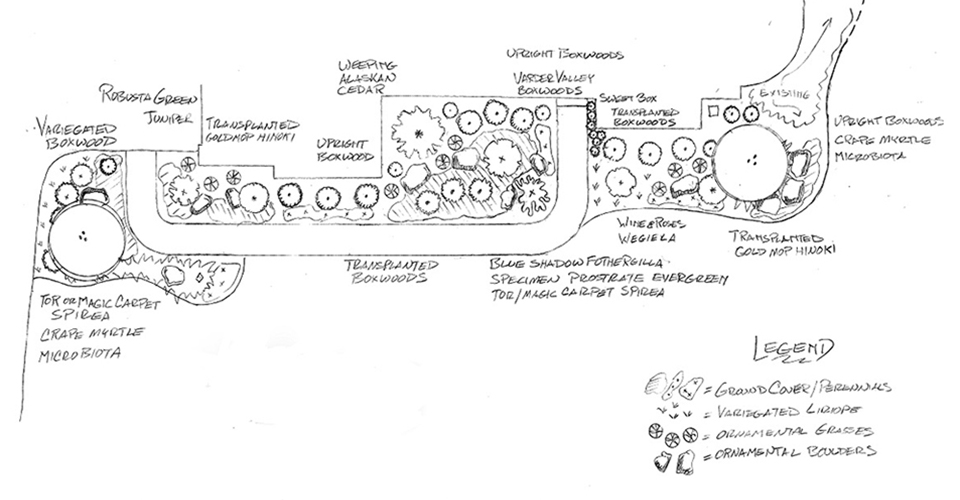 UPRIGHT BOXWOODS
WEEPING
ALASKAN
CEDAR
VARDER VALLEY
BOXWOODS
ROBUSTA GREEN
JUNIPER
SWEET BOX
TRANSPLANTED
BOXWOODS
EXISTING
VARIEGATED
BOXWOOD
TRANSPLANTED
GOLDMOP HINOKI
UPRIGHT
BOXWOOD
UPRIGHT BOXWOODS
CRAPE MYRTLE
MICROBIOTA
WINE & ROSES
WEGIELA
TRANSPLANTED
GOLD MOP HINOKI
TRANSPLANTED
BOXWOODS
BLUE SHADOW FOTHERGILLA
SPECIMEN PROSTRATE EVERGREEN
TOR/MAGIC CARPET SPIREA
TOR OR MAGIC CARPET
SPIREA
CRAPE MYRTLE
MICROBIOTA
LEGEND
= GROUND COVER/PERENNIALS
= VARIEGATED LIRIOPE
= ORNAMENTAL GRASSES
= ORNAMENTAL BOULDERS